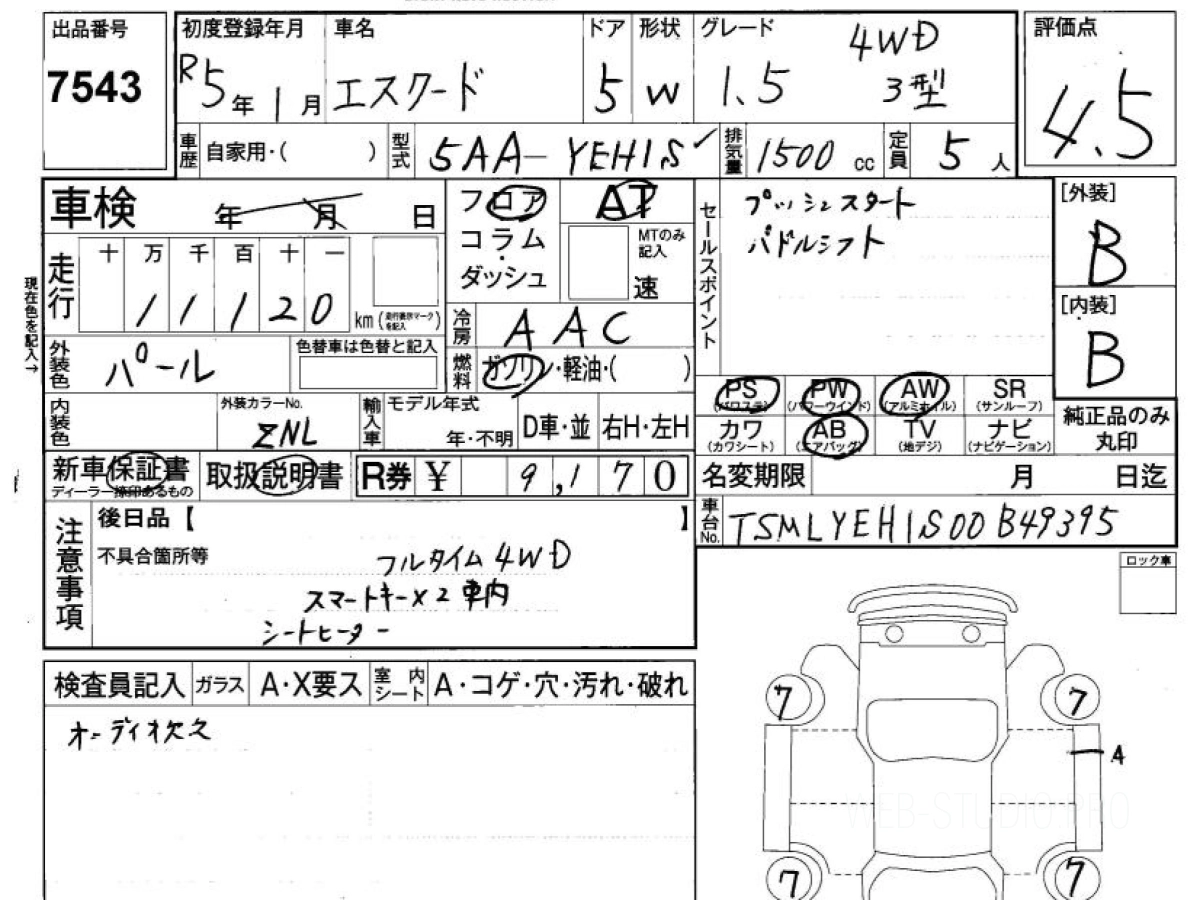 出品番号
7543
初度登録年月
R5年1月
車名
エスクード
ドア
5
形状
W
グレード
4WD
1.5 3型
評価点
4.5
車歴
自家用・( )
型式
5AA-YEH1S
排気量
1500cc
定員
5人
車検
年 月 日
フロア
コラム
・
ダッシュ
AT
MTのみ
記入
速
セールスポイント
プッシュスタート
パドルシフト
[外装]
B
[内装]
B
現在色を記入→
走行
十 万 千 百 十 一
1 1 1 2 0
km(走行表示マークを記入)
冷房
AAC
燃料
ガソリン・軽油・( )
外装色
パール
色替車は色替と記入
内装色
外装カラーNo.
ZNL
輸入車
モデル年式
年・不明
D車・並
右H・左H
PS
(パワステ)
PW
(パワーウインド)
AW
(アルミホイル)
SR
(サンルーフ)
カワ
(カワシート)
AB
(エアバッグ)
TV
(地デジ)
ナビ
(ナビゲーション)
純正品のみ
丸印
新車保証書
ディーラー捺印あるもの
取扱説明書
R券 ¥ 9,170
名変期限 月 日迄
車台No.
TSMLYEH1S00B49395
注意事項
後日品【 】
不具合箇所等
フルタイム4WD
スマートキー×2 車内
シートヒーター
ロック車
検査員記入
ガラス
A・X要ス
室内
シート
A・コゲ・穴・汚れ・破れ
オーディオ欠久
7 7
A
WEB-STUDIO.PRO
7 7